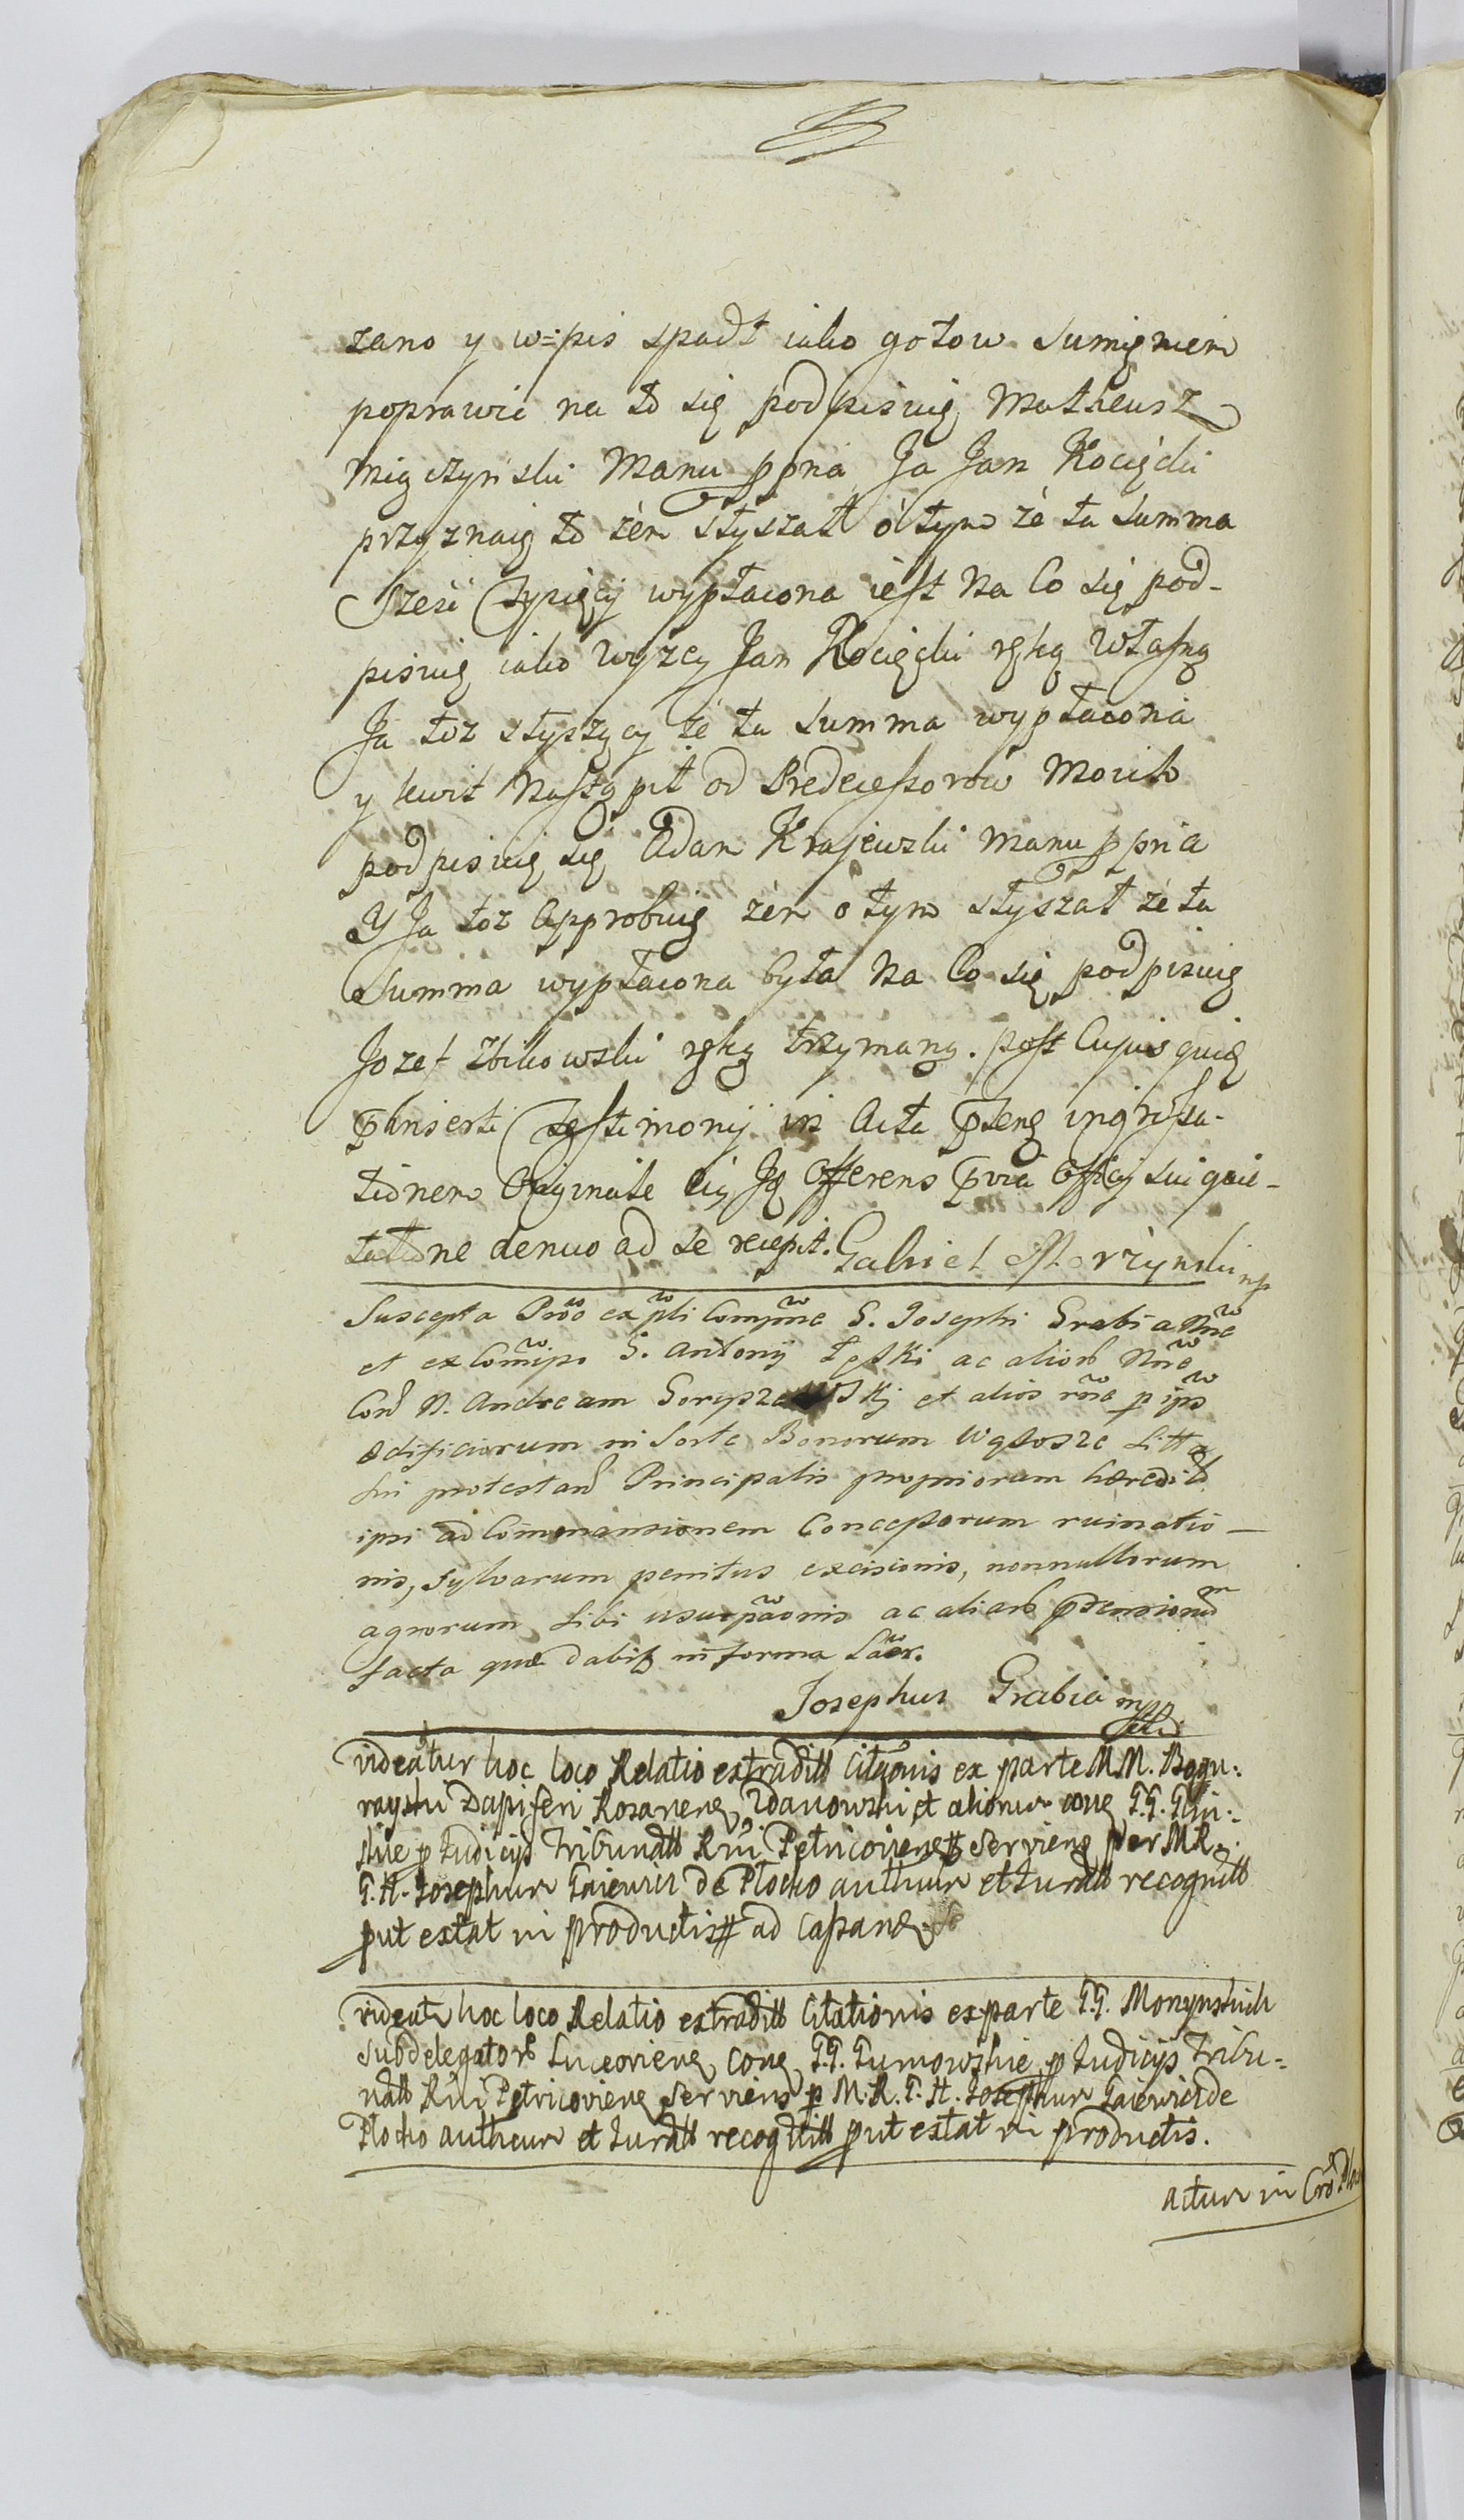 zano y w=pis spadł iako gotow sumięniem
poprawić na to się podpisuię Matheusz
Mięczyński Manu ppria Ja Jan Kocięcki
przyznaię to żem słyszał o tym że ta summa
Sześć Tysięcy wypłacona iest Na Co się pod-
pisuię iako Wyżey Jan Kocięcki ręką Własną
Ja toż słyszący że ta summa wypłacona
y kwit Nastąpił od Predecessorow Moich
podpisuię się Adam Krajewski Manu ppria
Y Ja toż Approbuię żem o tym słyszał że ta
Summa wypłacona była Na Co się podpisuię
Jozef Zbikowski ręką trzymaną. post Cujus quid
pbinserti Testimonij in Acta ptens ingrossa-
tionem Originale eiq Jd Offerens pvia Officij sui quie-
tatione denuo ad se recepit. Gabriel
Suscepta ex pti G. Josephi Grabia
et ex G. Antonij Łęski ac alior
Con N. Andream et alios p ips
ædificiorum in Sorte Bonorum Wgłosze Litt
sui protestan Principalis propriorum hæredit
ipsi ad Commansionem Concessorum ruinatio-
nis, sylvarum penitus excisionis, nonnullorum
agrorum sibi usurpaonis ac aliar ptensionum
facta quæ dabit in forma Laōr.
Josephus Grabia mpp
videatur hoc loco Relatio extradit Citaonis ex parte MM. Bogu:
rayski Dapiferi Rosanens, Zdanowski, et alionum cone G.G. Glin:
skie p Judicijs Tribunat Rni Petricoviens Serviens per MR.
G. H. Josephum Gaiewicz de Plocko authum et Jurat recognit
put extat in productis ad Cassans
videat hoc loco Relatio extradit Citationis ex parte G.G. Monynskich
Subdelegator Luceoriens cone G.G. Gumowskie p Judicijs Tribu=
nat Rni Petricoviens Serviens p M.R. G. H. Josephum Gaiewicz de
Plocko autheum et Jurat recognit put extat in productis.
Actum in